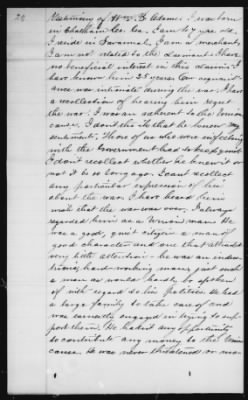 28
Testimony of Wm. B. Adams. I was born
in Chatham Co. Ga. I am 47 years old.
I reside in Savannah, I am a merchant.
I am not related to the claimant & have
no beneficial interest in this claim. I
have known him 25 years. Our acquaint-
ance was intimate during the war. I have
a recollection of hearing him regret
the war. I was an adherent to the Union
cause. I don't think that he knew my
sentiment. Those of us who were
with the Government had to keep quiet
I don't recollect whether he knew it or
not it is so long ago. I can't recollect
any particular expression of his
about the war. I have heard him
wish that the war was over. I always
regarded him as a Union man. He
was a good, quiet citizen a man of
good character and one that attracted
very little attention. he was an indus-
trious, hard-working man, just such
a man as would hardly be spoken
of with regard to his politics. He had
a large family to take care of and
was earnestly engaged in trying to sup-
port them. He hadn't any opportunity
to contribute any money to the Union
cause. He was never threatened or mo-